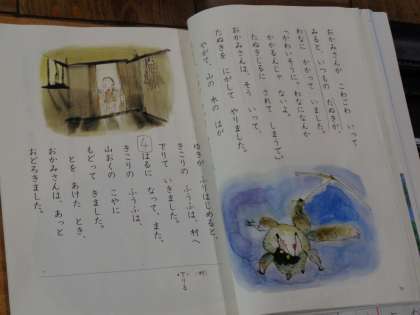 おかみさんが こわごわ いって
みると、いつもの たぬきが
わなに かかって いました。
「かわいそうに。わなになんか
かかるんじゃ ないよ。
たぬきじるに されて しまうで。」
おかみさんは、そう いって、
たぬきを にがして やりました。
やがて、山の 木の はが
ゆきが ふりはじめると、
きこりの ふうふは、村へ
下りて いきました。
4 はるに なって、また、
きこりの ふうふは、
山おくの こやに
もどって きました。
とを あけた とき、
おかみさんは、あっと
おどろきました。
下りる